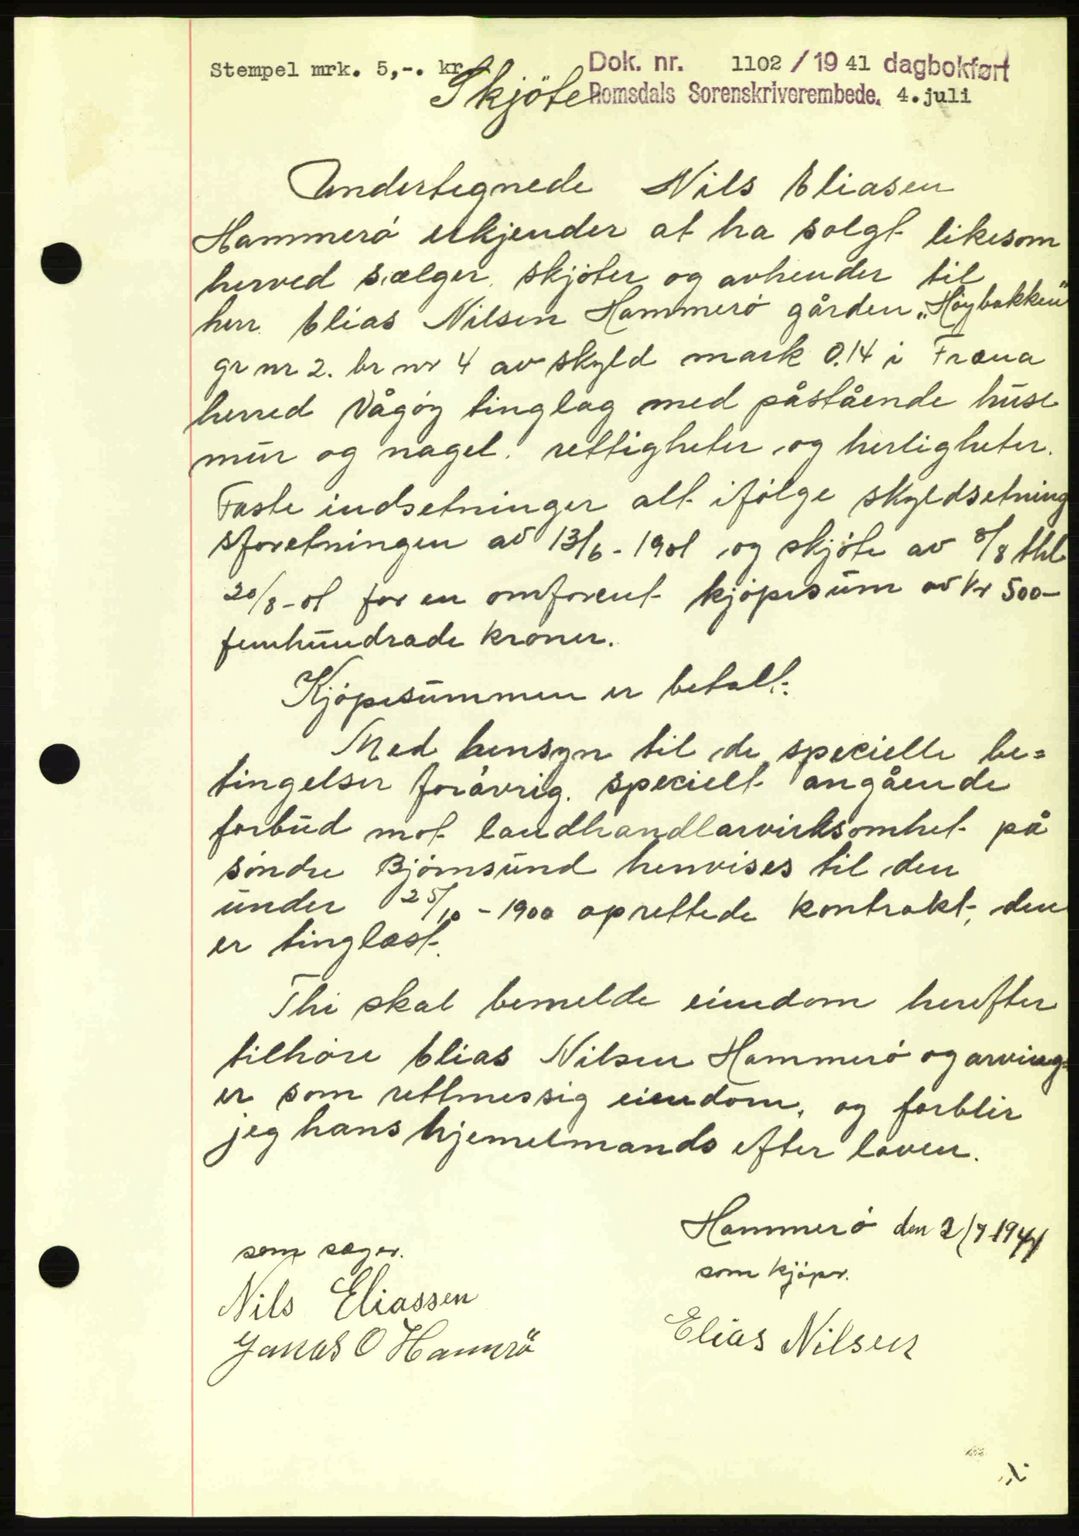 Stempel mrk. 5,-. kr.
Dok. nr. 1102 / 19 41 dagbokført
Skjöte
Romsdals Sorenskriverembede. 4. juli
Undertegnede Nils Eliasen
Hammerö erkjender at ha solgt likesom
herved sælger, skjöter og avhender til
herr. Elias Nilsen Hammerö gården „Höybakken"
gr nr 2. br nr 4 av skyld mark 0.14 i Fræna
herred Vågöy tinglag med påstående huse
mur og nagel. rettigheter og herligheter.
Faste indsetninger alt ifölge skyldsetning
sforetningen av 13/6 - 1901 og skjöte av 8/8 thl
20/8 - 01 for en omforent kjöpesum av kr 500-
femhundrade kroner.
Kjöpesummen er betalt.
Med hensyn til de specielle be=
tingelser forövrig. specielt angående
forbud mot landhandlarvirksomhet på
söndre Björnsund henvises til den
under 25/10 - 1900 oprettede kontrakt, den
er tinglæst.
Thi skal bemelde eiendom herefter
tilhöre Elias Nilsen Hammerö og arving
er som rettmessig eiendom, og forblir
jeg hans hjemelmands efter loven.
Hammerö den 2/7 1941
som sæger.
som kjöper.
Nils Eliassen
Elias Nilsen
Jonas O Hamrö